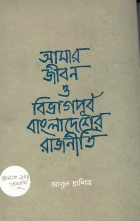 আমার
জীবন
ও
বিভাগপূর্ব
বাংলাদেশের
রাজনীতি
আবুল হাশিম